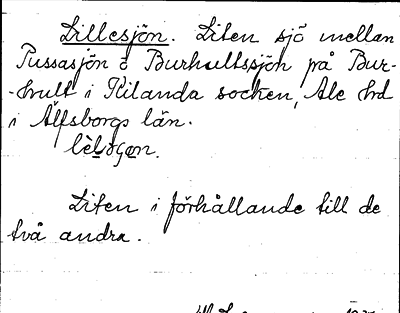 Lillesjön. Liten sjö mellan
Pussasjön o Burhultssjön på Bur-
-hult i Kilanda socken, Ale hd
i Älfsborgs län.
Liten i förhållande till de
två andra.